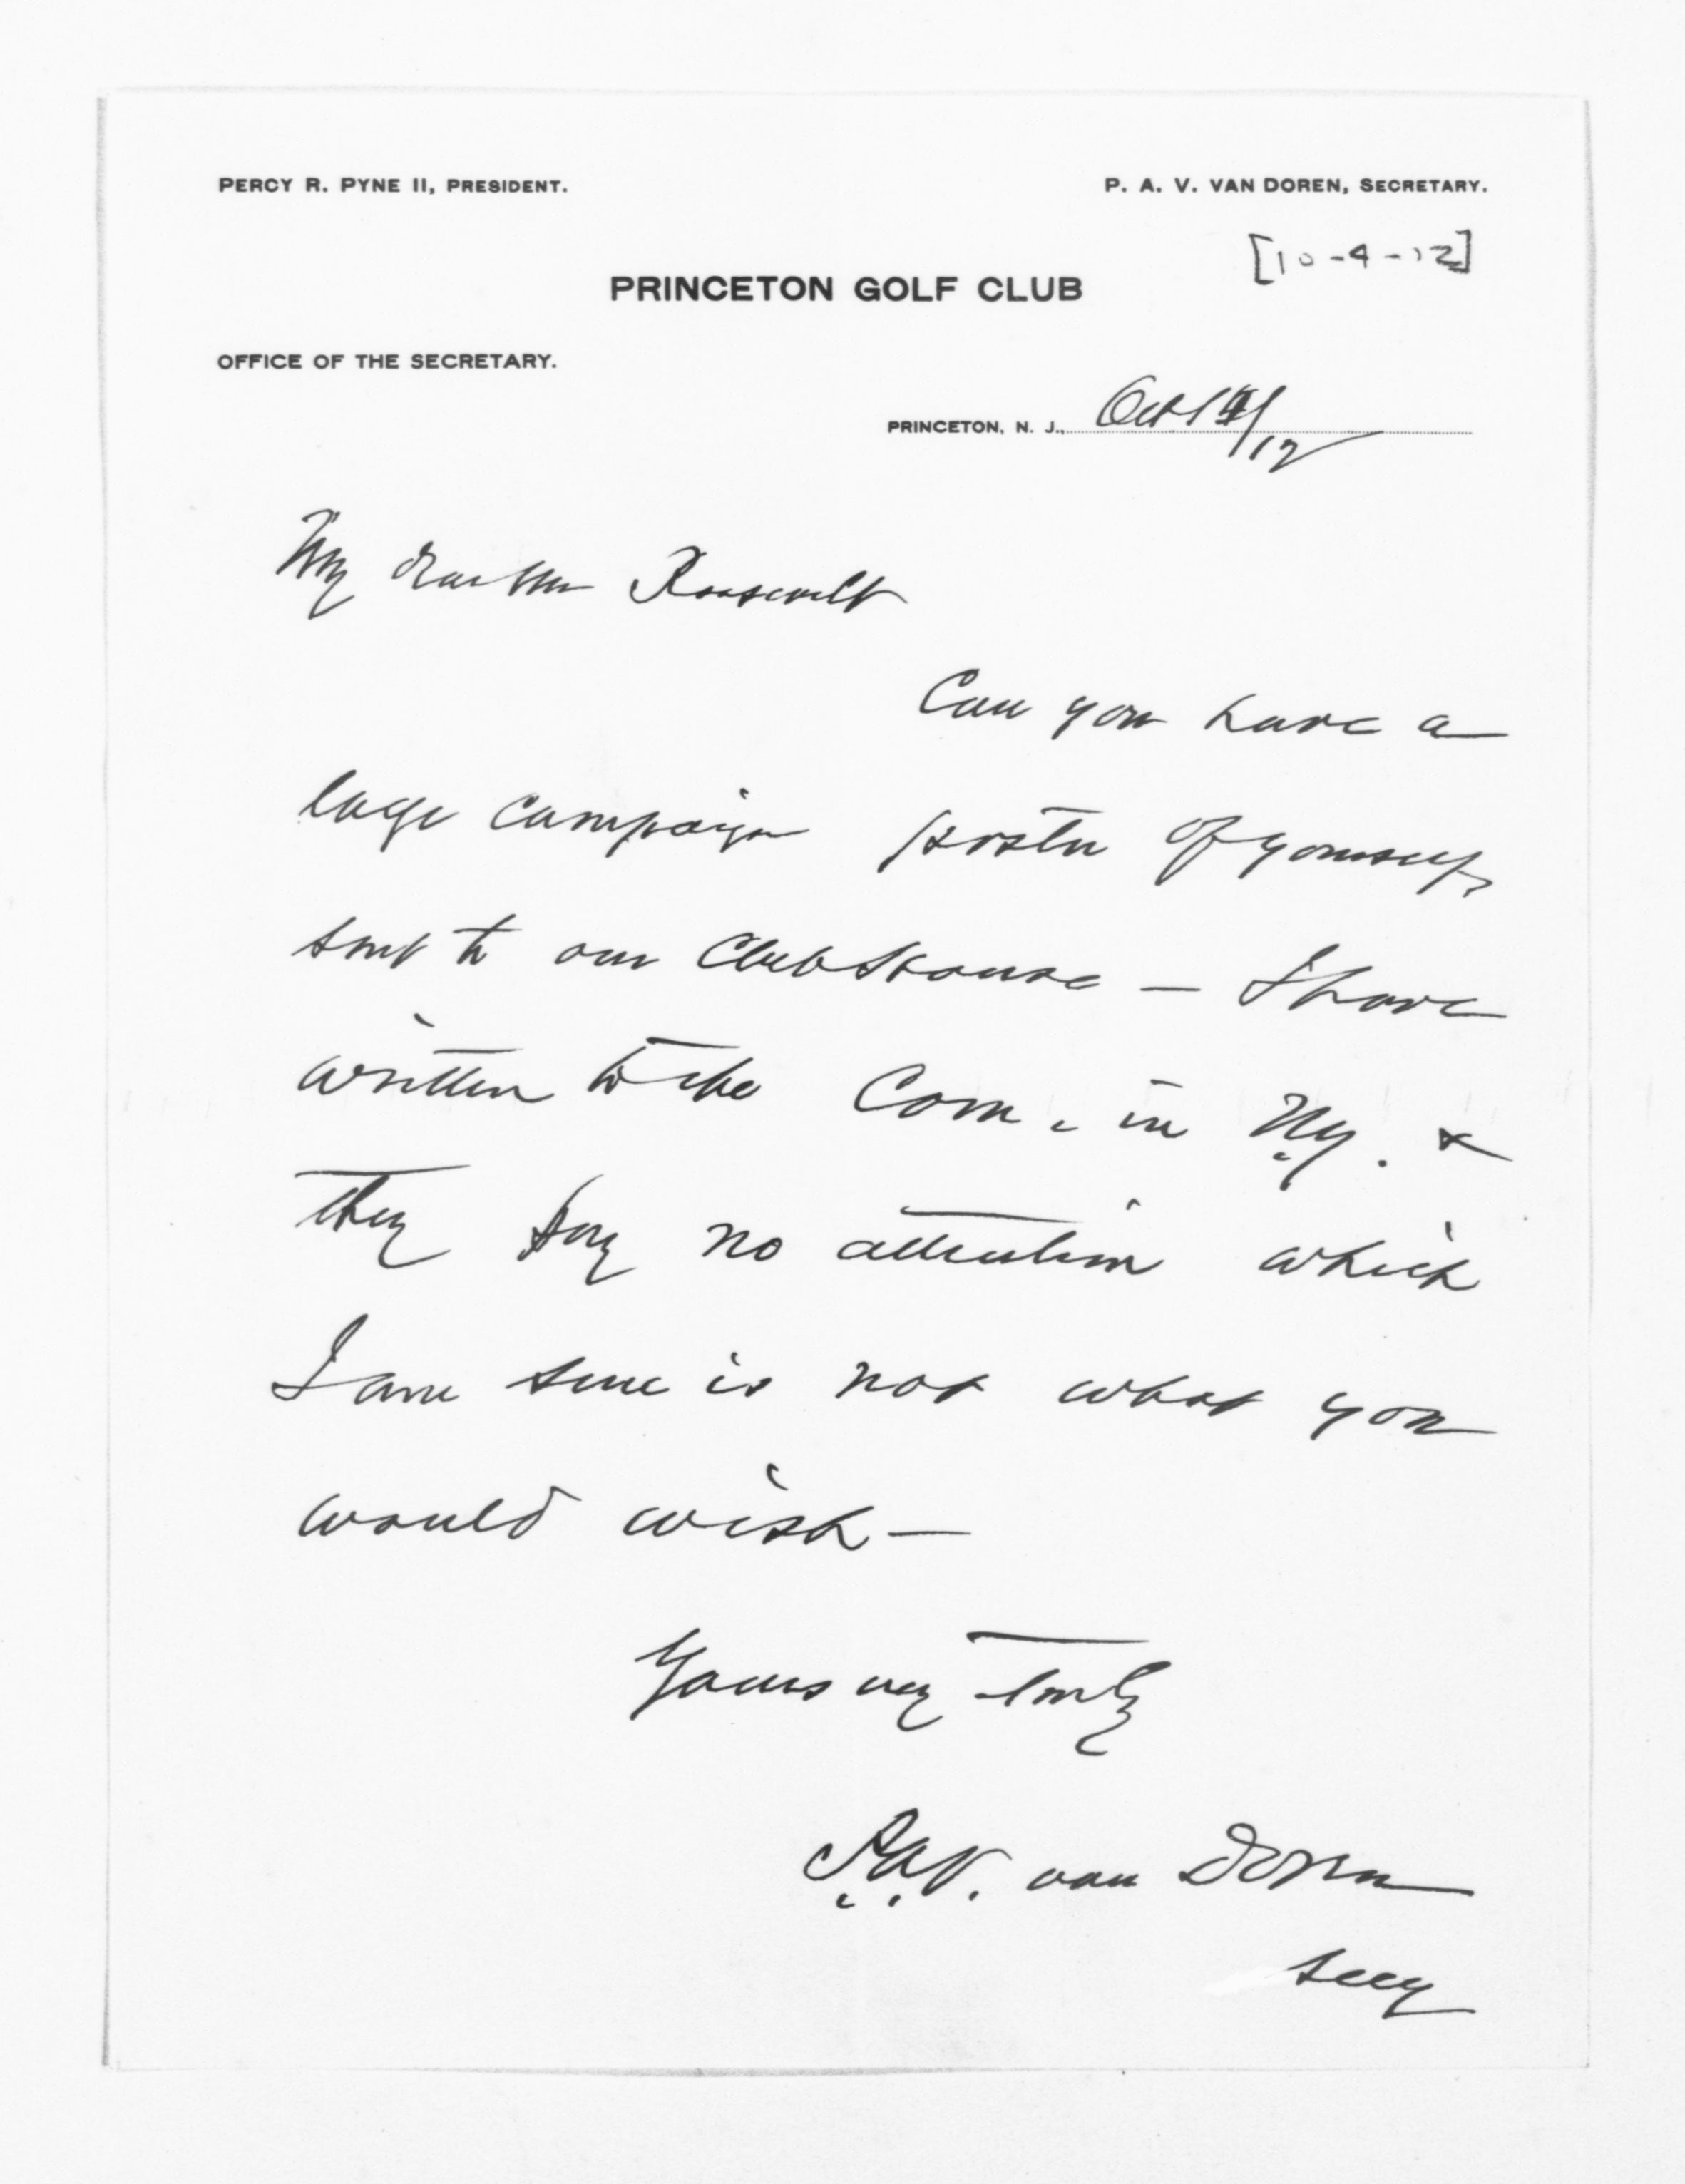 PERCY R. PYNE II, PRESIDENT. P. A. V. VAN DOREN, SECRETARY.
[10-4-12]
PRINCETON GOLF CLUB
OFFICE OF THE SECRETARY.
PRINCETON, N. J., Oct 4/12
My dear Mr Roosevelt
Can you have a
large campaign poster of yourself
sent to our Club house — I have
written to the Com. in N.Y. &
they pay no attention which
I am sure is not what you
would wish —
Yours very truly
P.A.V. van Doren
Secy